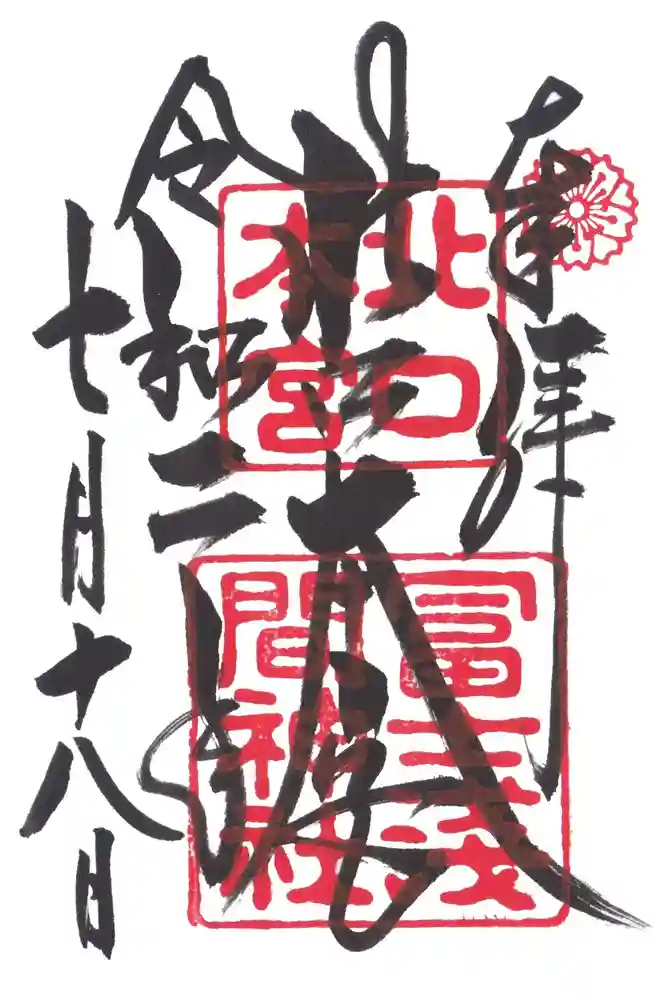 奉拝
北口
本宮
冨士浅
間神社
令和二年
七月十八日